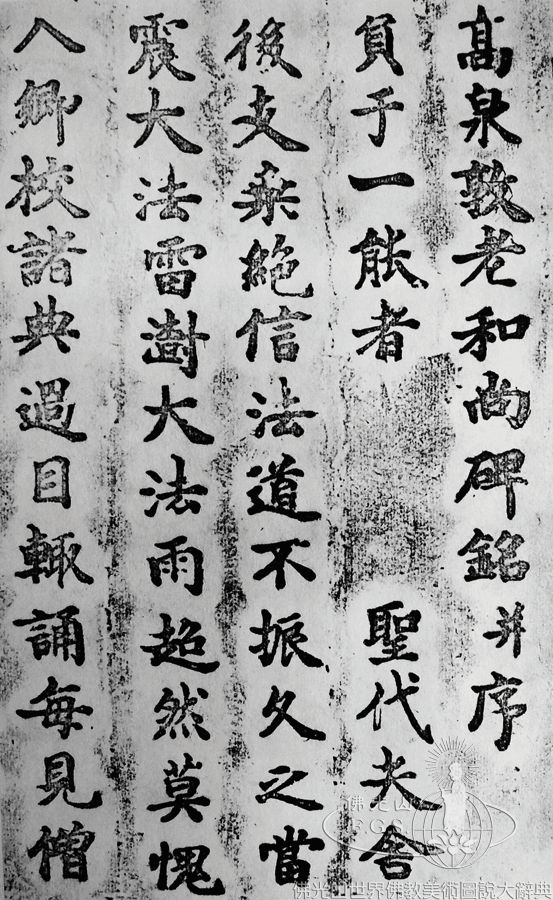 髙泉敦老和尚碑銘并序
負于一能者 聖代舍
後支絶信法道不振久之當
震大法雷澍大法雨超然莫愧
入鄉校諸典過目輙誦毎見僧
佛光山
佛光山世界佛教美術圖說大辭典